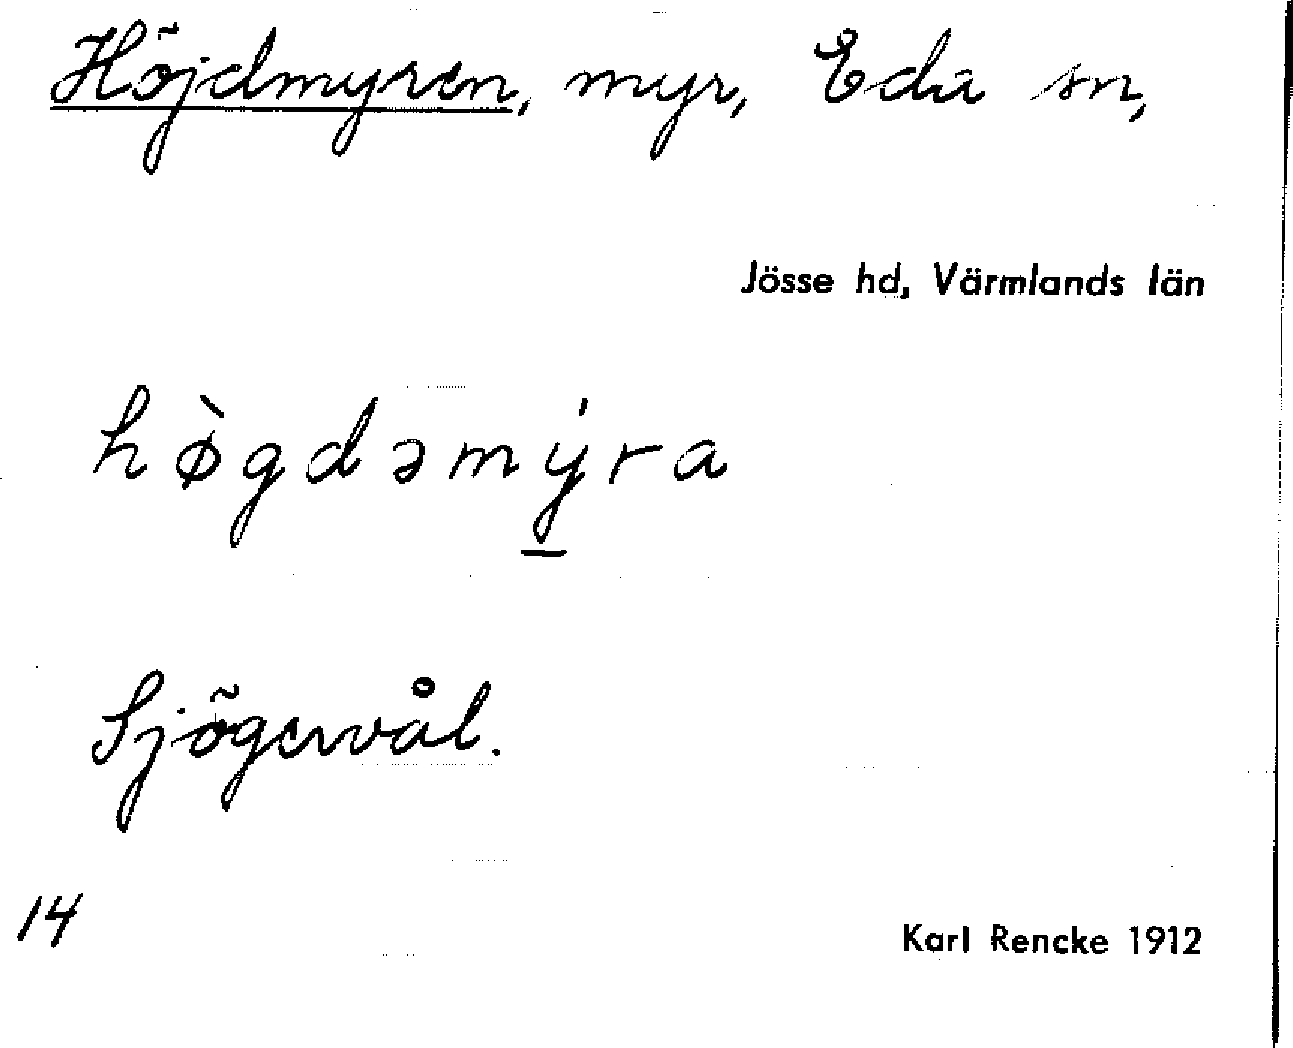 Höjdmyren, myr, Eda sn,
Jösse hd, Värmlands län
hø̀gdəmýra
Sjögervål.
14
Karl Rencke 1912